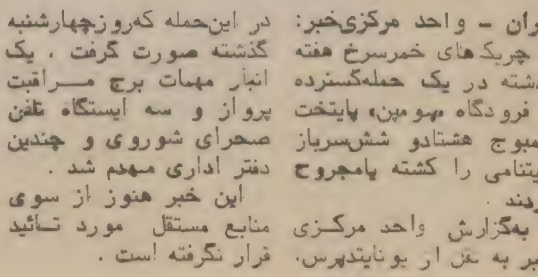 ران - واحد مرکزی‌خبر:
چریک‌های خمرسرخ هفته
شته در یک حمله‌گسترده
فرودگاه پایتخت
مبوج هشتادو شش‌سرباز
یتنامی را کشته یامجروح
ردند
به‌گزارش واحد مرکزی
بر به نقل از یونایتدپرس،
در این‌حمله که‌روزچهارشنبه
گذشته صورت گرفت ، یک
انبار مهمات برج مراقبت
پرواز و سه ایستگاه تلفن
صحرای شوروی و چندین
دفتر اداری منهدم شد .
این خبر هنوز از سوی
منابع مستقل مورد تائید
قرار نگرفته است .